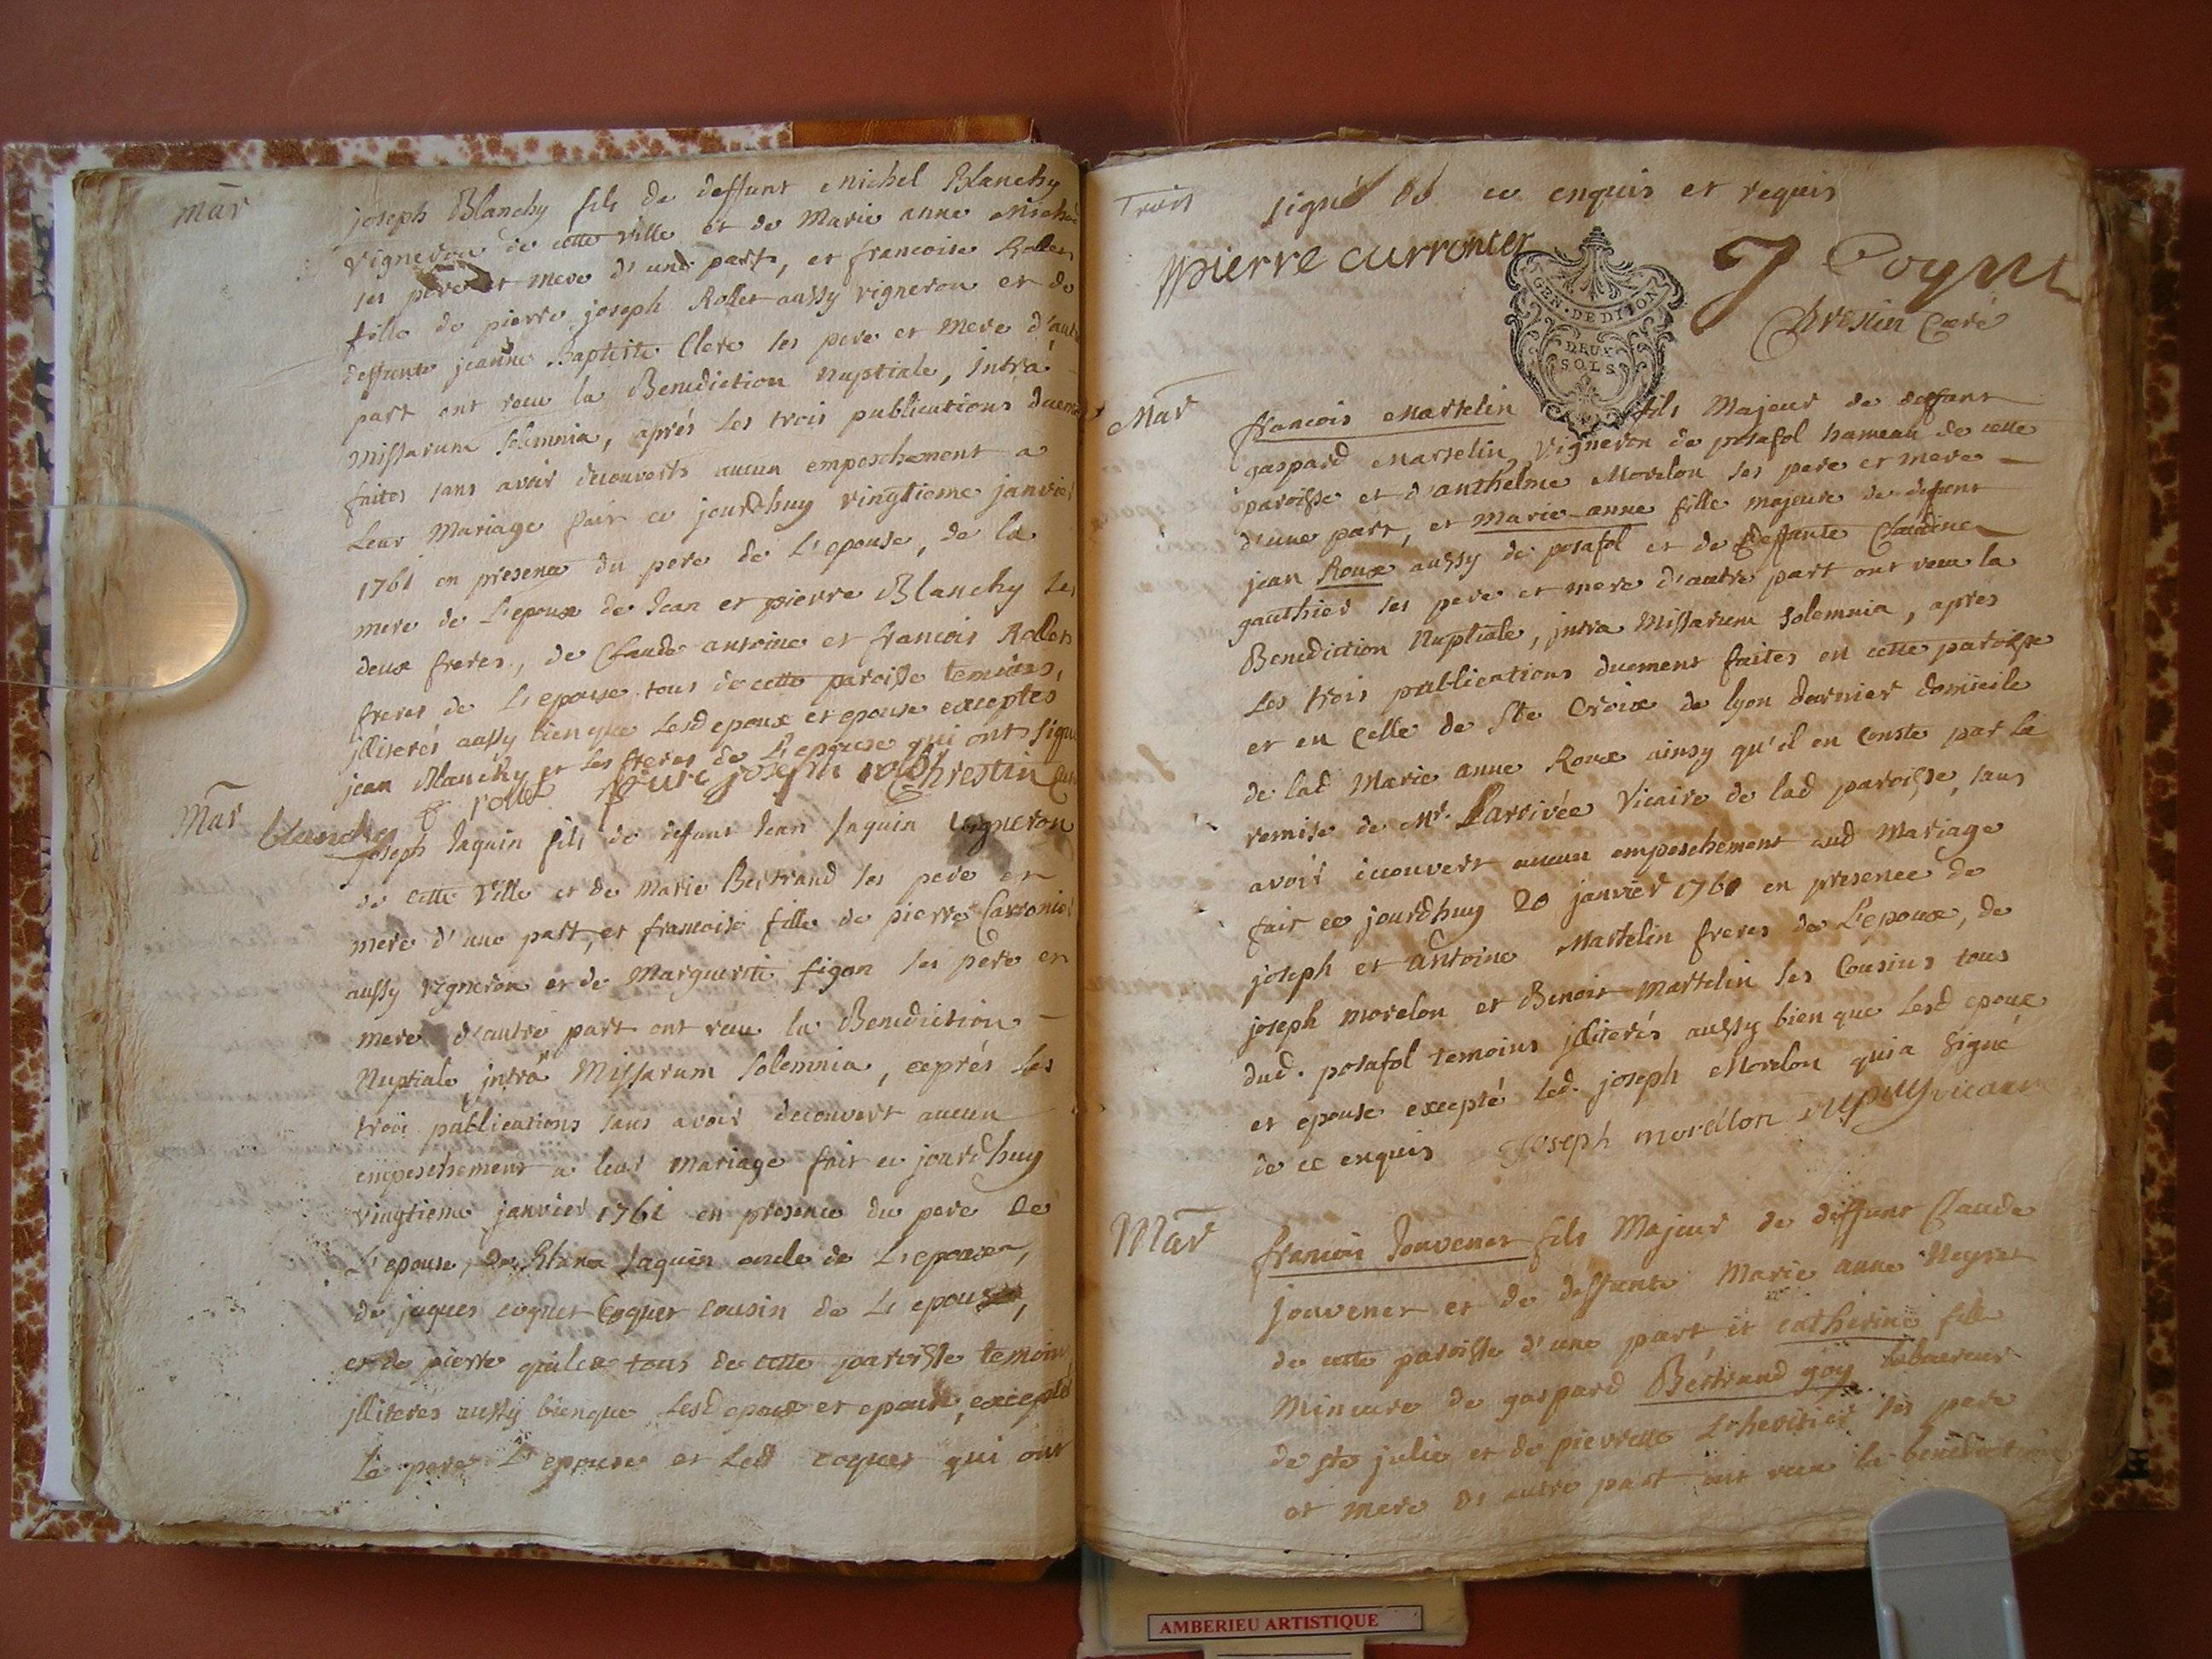 mar
joseph Blanchy fils de deffunt Michel Blanchy
vigneron de cette ville et de Marie anne
ses pere et mere d'une part, et francoise Rollet
fille de pierre joseph Rollet aussy vigneron et de
deffunte jeanne Baptiste Clere ses pere et mere d'autre
part ont receu la Benediction nuptiale, intra
missarum solemnia, aprés les trois publications duement
faites sans avoir decouverts aucun empeschement a
leur mariage fait ce jourdhuy vingtieme janvier
1761 en presence du pere de L'epouse, de la
mere de L'epoux de Jean et pierre Blanchy ses
deux freres, de Claude antoine et francois Rollet
freres de L'epouse tous de cette paroisse temoins,
jlliterés aussy bien que Lesd epoux et epouse exceptes
jean Blanchy et les freres de L'epouse qui ont signé
rollet joseph rollet Chrestin Curé
blanchy
Mar
joseph Jaquin fils de defunt Jean Jaquin vigneron
de cette ville et de Marie Bertrand ses pere et
mere d'une part, et francoise fille de pierre Carronier
aussy vigneron et de Marguerite figon ses pere et
mere d'autre part ont receu la Benediction
Nuptiale jntra Missarum solemnia, aprés les
trois publications sans avoir decouvert aucun
empeschement a leur mariage fait ce jourdhuy
vingtieme janvier 1761 en presence du pere de
L'epouse, de Jaquin oncle de L'epoux,
de jaques cognet Coquet cousin de L'epouse,
et de pierre tous de cette paroisse temoins
jlliterés aussy bienque Lesd epoux et epouse, exceptés
le pere L'epouse et Led coquet qui ont
Trois
signé de ce enquis et requis
pierre curronier
J Cognet
GEN. DE DIJON
DEUX
SOLS
Chrestin Curé
Mar
francois Martelin fils Majeur de deffunt
gaspard Martelin, Vigneron de posafol hameau de cette
paroisse et d'anthelme Morelon ses pere et mere
d'une part, et Marie-anne fille majeure de defunt
jean Roux aussy de posafol et de deffunte Claudine
gauthier ses pere et mere d'autre part ont receu la
Benediction Nuptiale, jntra Missarum solemnia, apres
Les trois publications duement faites en cette paroisse
et en celle de Ste Croix de lyon dernier domicile
de lad Marie anne Roux ainsy qu'il en conste par la
remise de Mr. Larrivée Vicaire de lad paroisse, sans
avoir decouvert aucun empeschement aud Mariage
fait ce jourdhuy 20 janvier 1761 en presence de
joseph et antoine Martelin freres de L'epoux, de
joseph morelon et Benoit Martelin ses Cousins tous
dud. posafol temoins jlliterés aussy bien que Lesd epoux
et epouse excepté led. joseph Morelon qui a signé
de ce enquis joseph morellon Dupuy vicaire
Mar
francois Jouvenet fils Majeur de deffunt Claude
Jouvenet et de deffunte Marie anne Neyret
de cette paroisse d'une part et catherine fille
Mineure de gaspard Bertrand goy laboureur
de ste julie et de pierrette Lheritier ses pere
et mere d'autre part ont receu la benediction
AMBERIEU ARTISTIQUE